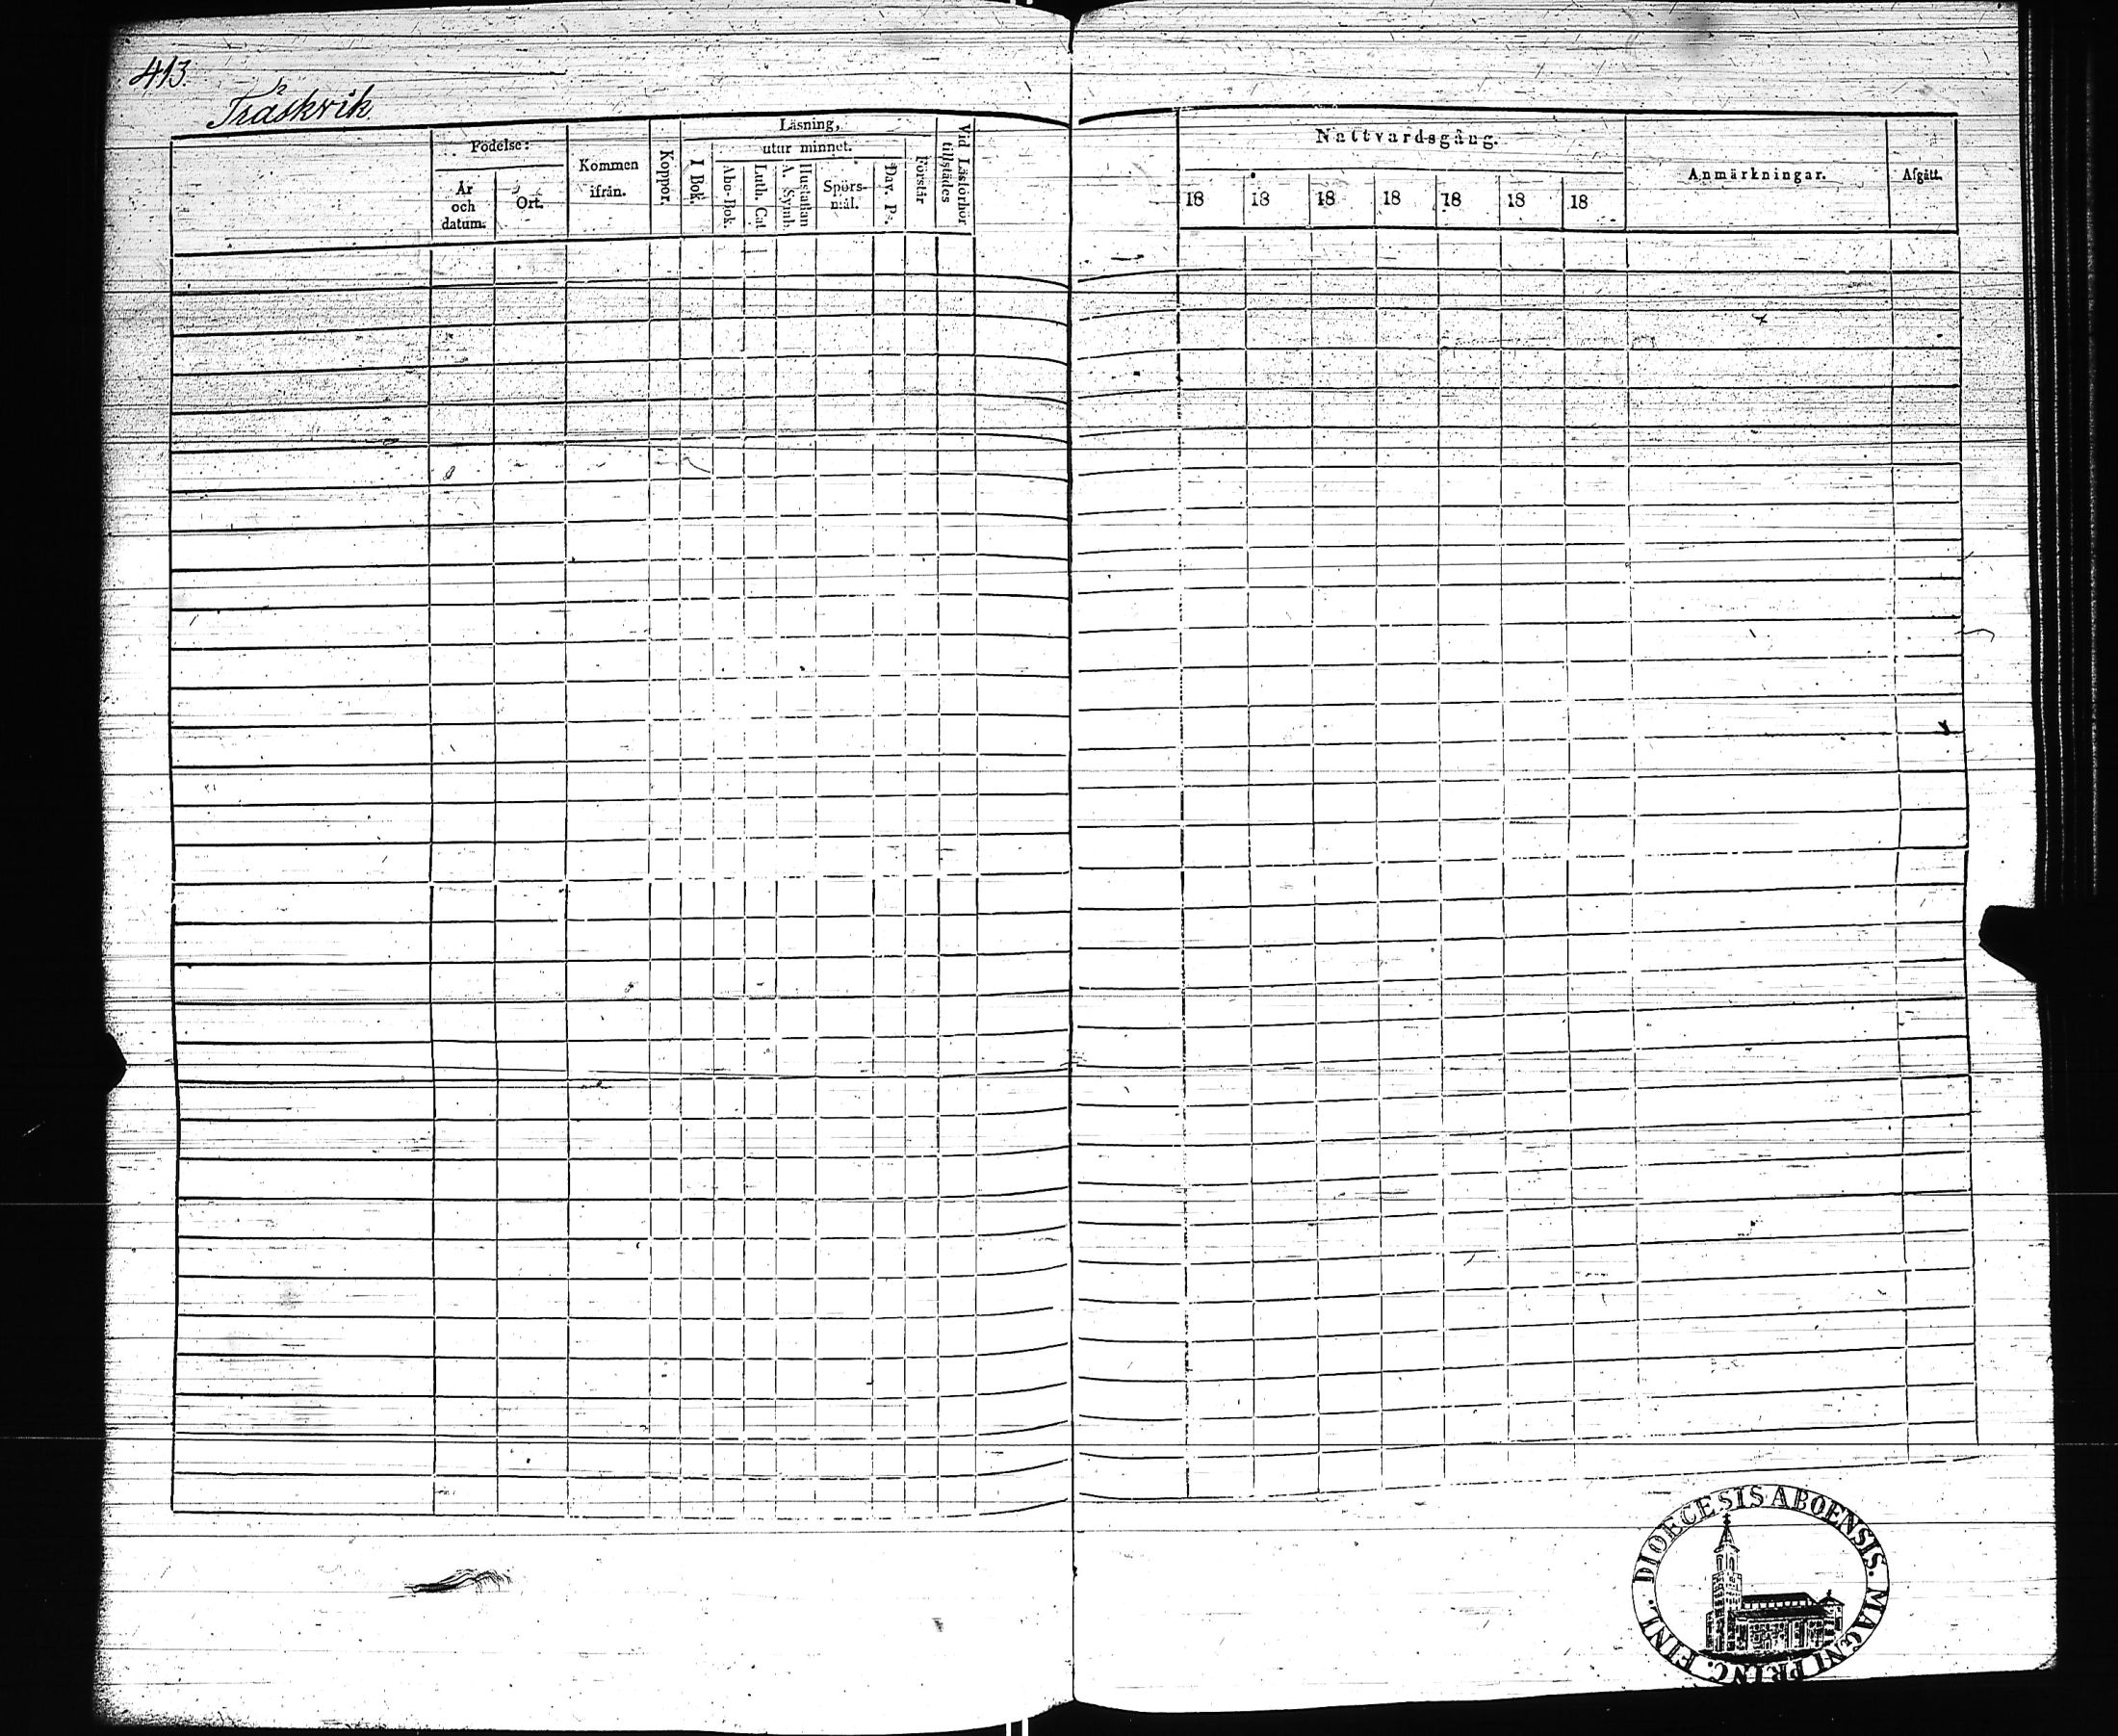 413.
Träskvik.
Födelse:
År
och
datum.
Ort.
Kommen
ifrån.
Koppor.
Läsning,
I Bok.
utur minnet.
Abc-Bok.
Luth. Cat
A. Symb.
Hustaflan
Spörs-
mål.
Dav. Ps.
Förstår
Vid Läsförhör
tillstädes
Nattvardsgång.
18 18 18 18 18 18 18
Anmärkningar.
Afgått.
DIOECESIS ABOENSIS. MAGNI PRINC. FINL.